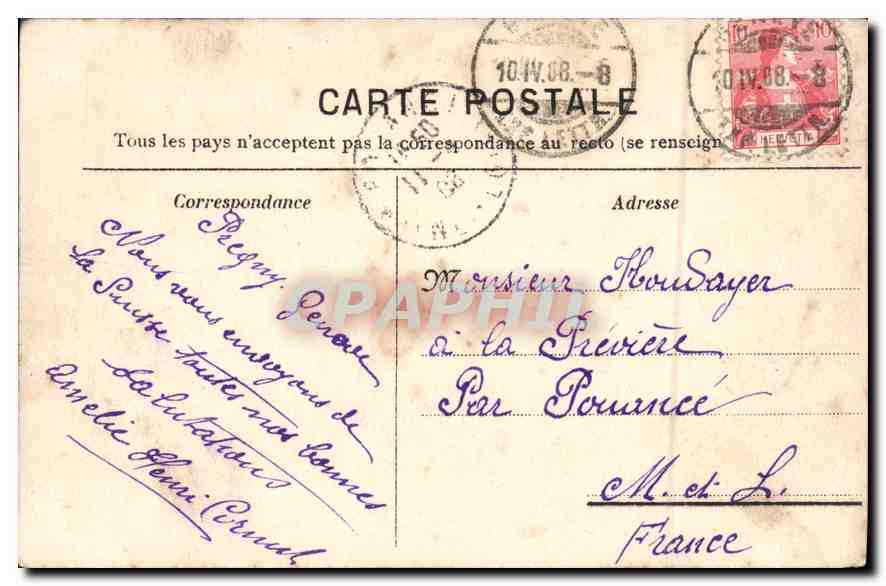 10 10
HELVETIA
10.IV.08.-8
10.IV.08.-8
CARTE POSTALE
Tous les pays n'acceptent pas la correspondance au recto (se renseign
Correspondance
Adresse
Pregny. Geneve
Nous vous envoyons de
la Suisse toutes nos bonnes
Salutations
Amelie Henri
Monsieur Houdayer
à la Prévière
Par Pouancé
M. et L.
France
CPAPHIL